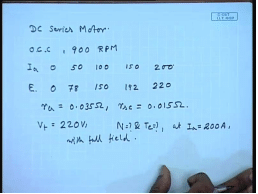 DC Series Motor.
O.C.C, 900 RPM
Ia 0 50 100 150 200
E. 0 78 150 192 220
ra = 0.035Ω, rse = 0.015Ω.
Vt = 220V, N=? & Te=?, at Ia=200A,
with full field.